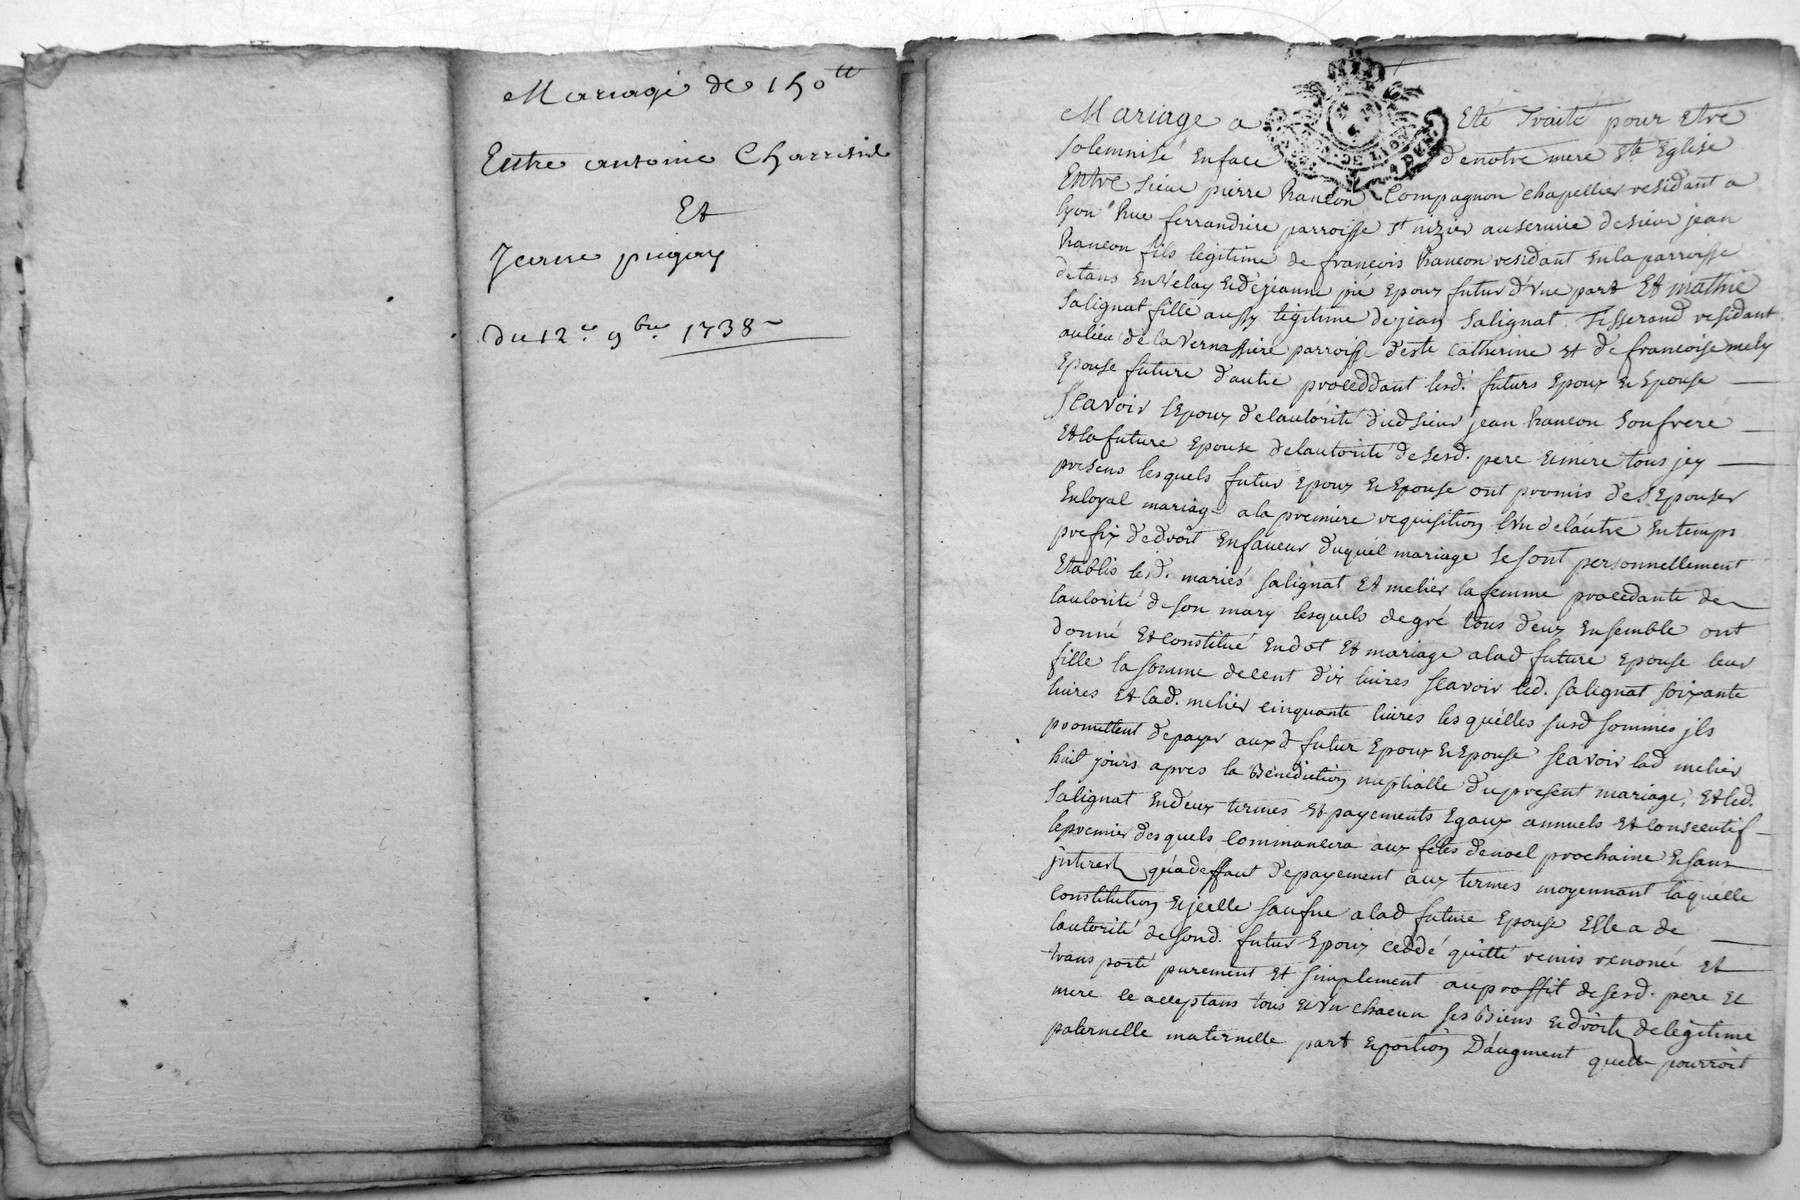 Mariage de 150tt
Entre antoine Charreire
Et
Jeanne pugay
Du 12e 9bre 1738
Mariage a Eté Traité pour Etre
Solemnisé En face de notre mere Ste Eglise
Entre Sieur pierre Rancon Compagnon chapellier residant a
lyon Rue ferrandiere parroisse St nizier au service de sieur jean
Rancon fils legitime de francois Rancon residant en la parroisse
de tans En Velay Et de jeanne pié Epoux futur d'Vne part Et mathie
Salignat fille aussy legitime de jean Salignat Tisserand residant
au lieu de la Vernassiere parroisse de ste Catherine Et de francoise mely
Epouse future d'autre proceddant lesd. futurs Epoux Et Epouse
Scavoir l'Epoux de lautorité dud sieur jean Rancon Son frere
Et la future Epouse de lautorité de sesd. pere Et mere tous jcy
presens lesquels futur Epoux Et Epouse ont promis de s'Epouser
En loyal mariage a la premiere requisition lVn de lautre En temps
prefix de droit En faueur duquel mariage Se sont personnellement
Etablis lesd. mariés Salignat Et melier la femme procedante de
lautorité de son mary lesquels de gré tous deux Ensemble ont
donné Et constitué En dot Et mariage a lad future Epouse leur
fille la somme de cent dix liures scavoir led. Salignat soixante
liures Et lad. melier cinquante liures lesquelles susd sommes jls
promettent de payer auxd futur Epoux Et Epouse scavoir lad melier
huit jours apres la Bénédiction nuptialle du present mariage, Et led.
Salignat En deux termes Et payements Egaux annuels Et consecutif
le premier desquels commancera aux fêtes de noel prochaine Et sans
jnterest qu'a deffaut de payement aux termes moyennant laquelle
Constitution Et jcelle saufue a lad future Epouse Elle a de
lautorité de sond. futur Epoux ceddé quitté remis renoncé Et
transporté purement Et simplement au proffit de sesd. pere Et
mere ce acceptans tous Et Vn chacun ses Biens Et droits de legitime
paternelle maternelle part Et portion D'augment quelle pourroit